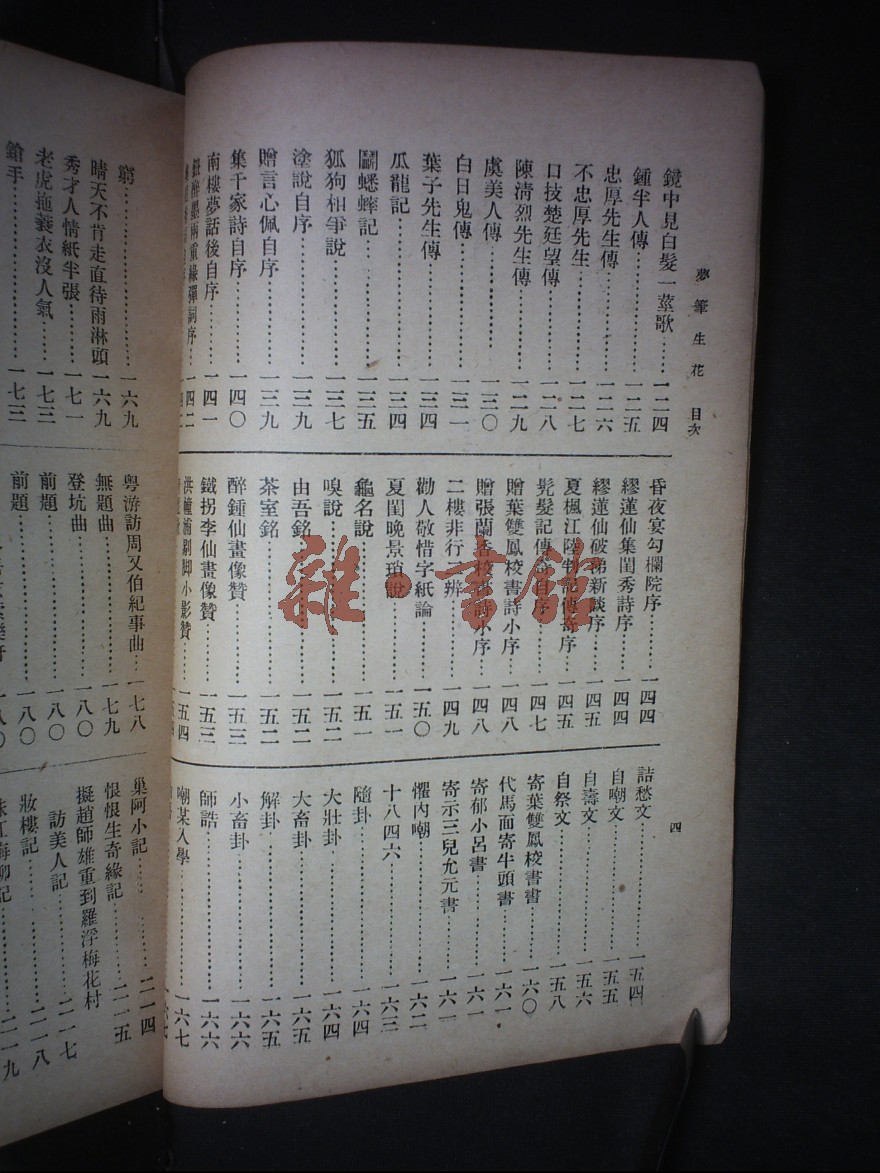 夢筆生花 目次
四
鏡中見白髮一莖歌……一二四
鍾半人傳……一二五
忠厚先生傳……一二六
不忠厚先生……一二七
口技楚廷望傳……一二八
陳淸烈先生傳……一二九
虞美人傳……一三〇
白日鬼傳……一三一
葉子先生傳……一三四
瓜龍記……一三四
鬭蟋蟀記……一三五
狐狗相爭說……一三七
塗說自序……一三九
贈言心佩自序……一三九
集千家詩自序……一四〇
南樓夢話後自序……一四一
兩重緣彈詞序……一四二
昏夜宴勾欄院序……一四四
繆蓮仙集閨秀詩序……一四四
繆蓮仙破稊新談序……一四五
夏楓江陸判記傳奇序……一四五
髡髮記傳奇自序……一四七
贈葉雙鳳校書詩小序……一四八
贈張蘭香校書詩小序……一四八
二樓非行一辨……一四九
勸人敬惜字紙論……一五〇
夏閨晚景瑣說……一五一
龜名說……一五一
嗅說……一五二
由吾銘……一五二
茶室銘……一五二
醉鍾仙畫像贊……一五三
鐵拐李仙畫像贊……一五三
剔脚小影贊……一五四
詰愁文……一五四
自嘲文……一五五
自壽文……一五六
自祭文……一五八
寄葉雙鳳校書書……一六〇
代馬面寄牛頭書……一六一
寄郁小呂書……一六一
寄示三兒允元書……一六一
懼內嘲……一六二
十八四六……一六三
隨卦……一六四
大壯卦……一六四
大畜卦……一六五
解卦……一六五
小畜卦……一六六
師誥……一六六
嘲某入學……一六七
窮……一六九
晴天不肯走直待雨淋頭……一六九
秀才人情紙半張……一七一
老虎拖蓑衣沒人氣……一七三
鎗手……一七三
粵游訪周又伯紀事曲……一七八
無題曲……一七九
登坑曲……一八〇
前題……一八〇
前題……一八〇
巢阿小記……二一四
恨恨生奇緣記……二一五
擬趙師雄重到羅浮梅花村
訪美人記……二一七
妝樓記……二一八
珠江梅柳記……二一九
雜·書館